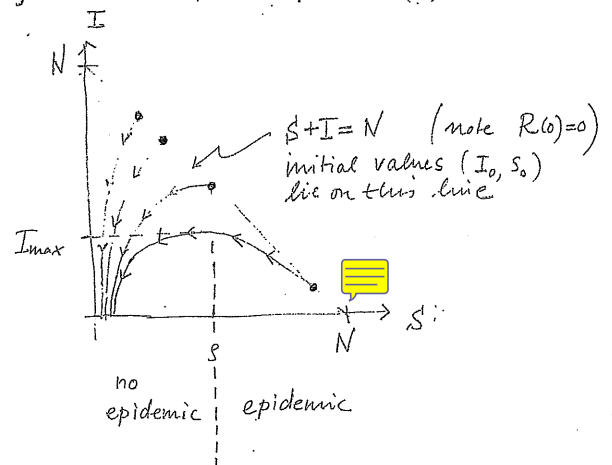 I
N
S+I=N (note R(0)=0)
initial values (I₀, S₀)
lie on this line
Imax
S
N
ρ
no
epidemic
epidemic